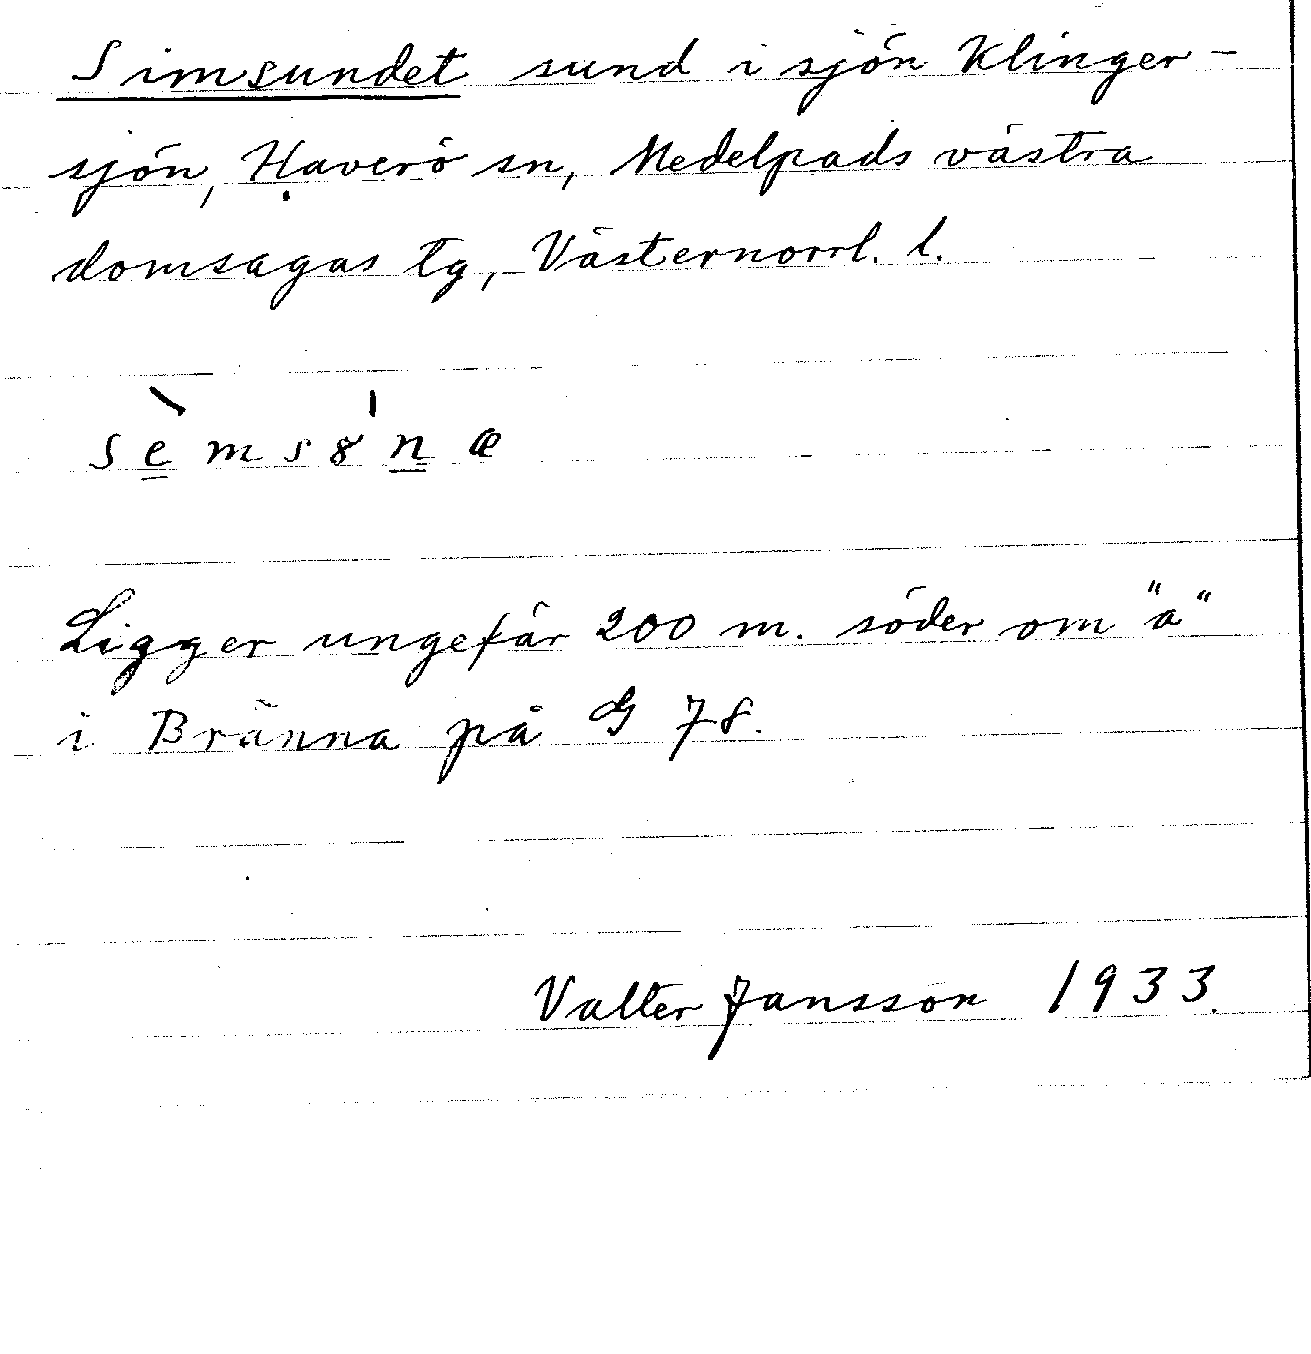 Simsundet sund i sjön Klinger-
sjön, Haverö sn, Medelpads västra
domsagas tg, Västernorrl. l.
sèmsȣ'næ
Ligger ungefär 200 m. söder om "a"
i Bränna på G 78.
Valter Jansson 1933.